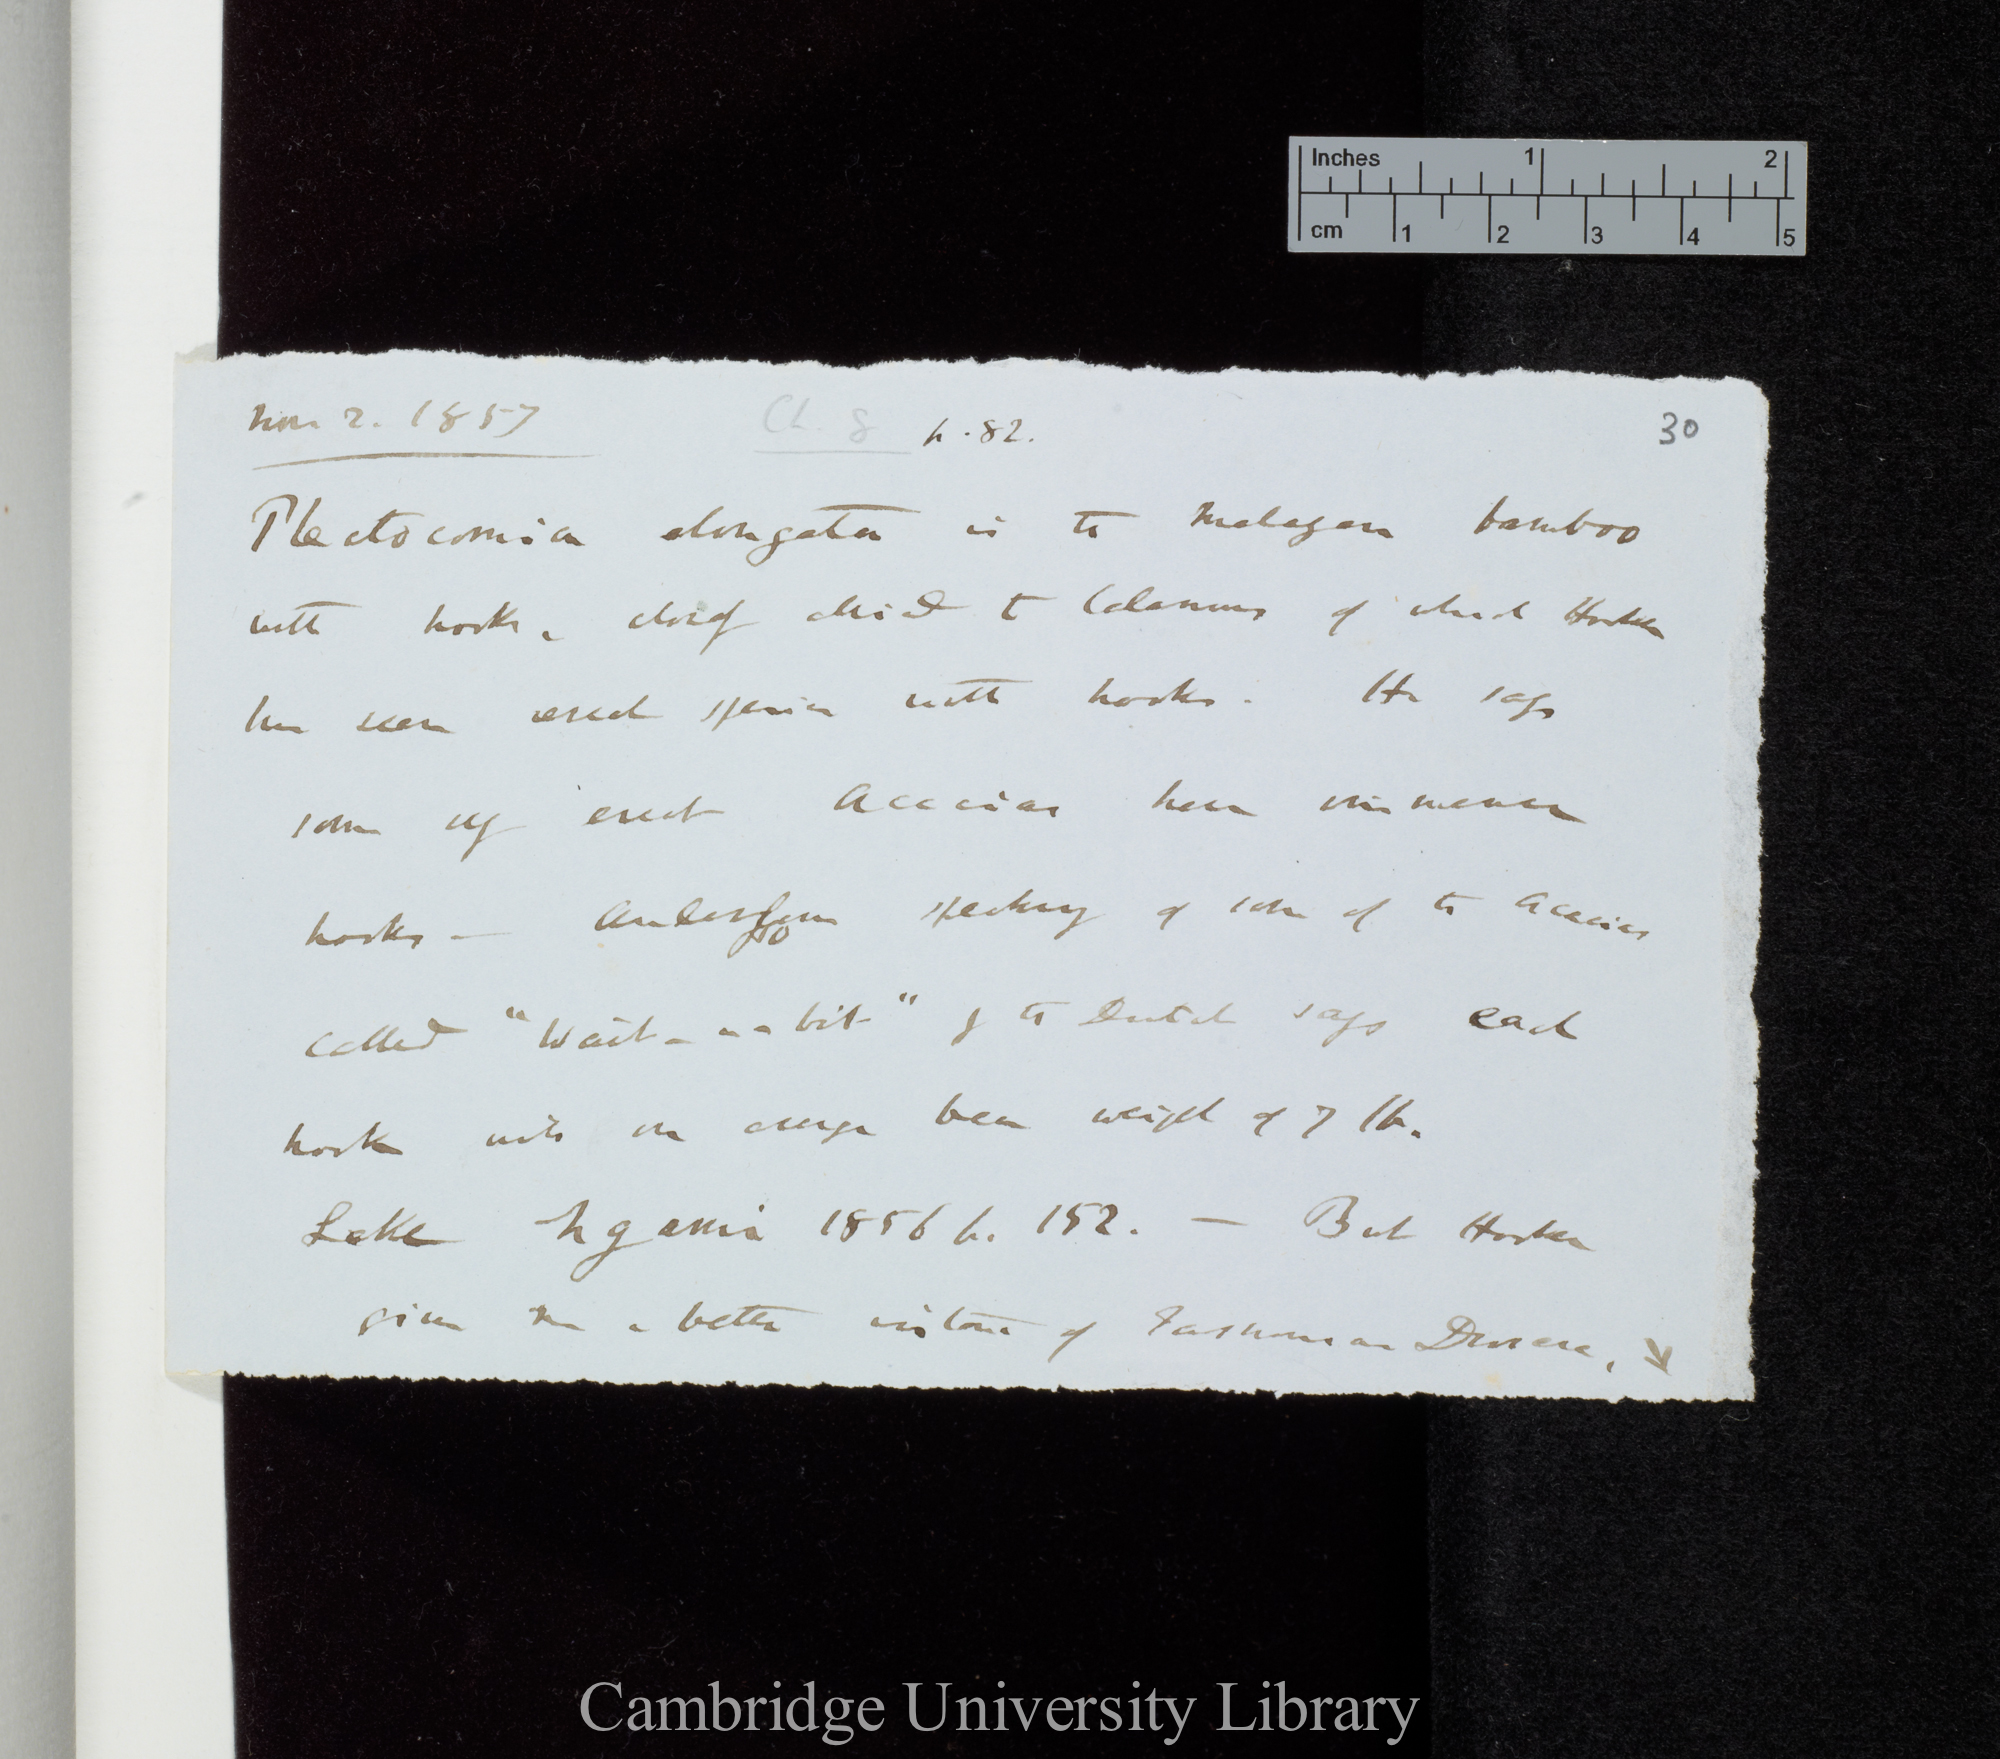 Inches 1 2
cm 1 2 3 4 5
Nov. 2. 1857 Ch. 8 p. 82. 30
Plectocomia elongata is the Malayan bamboo
with hooks, closely allied to Calamus of which Hooker
has seen erect species with hooks. He says
some erect Acacias have immense
hooks — Andersson speaking of some of the Acacias
called "Wait-a-bit" by the Dutch says each
hook will on average bear weight of 7 lb.
Lake Ngami 1856 p. 152. — But Hooker
gives me a better instance of Tasmanian Drosera,
Cambridge University Library